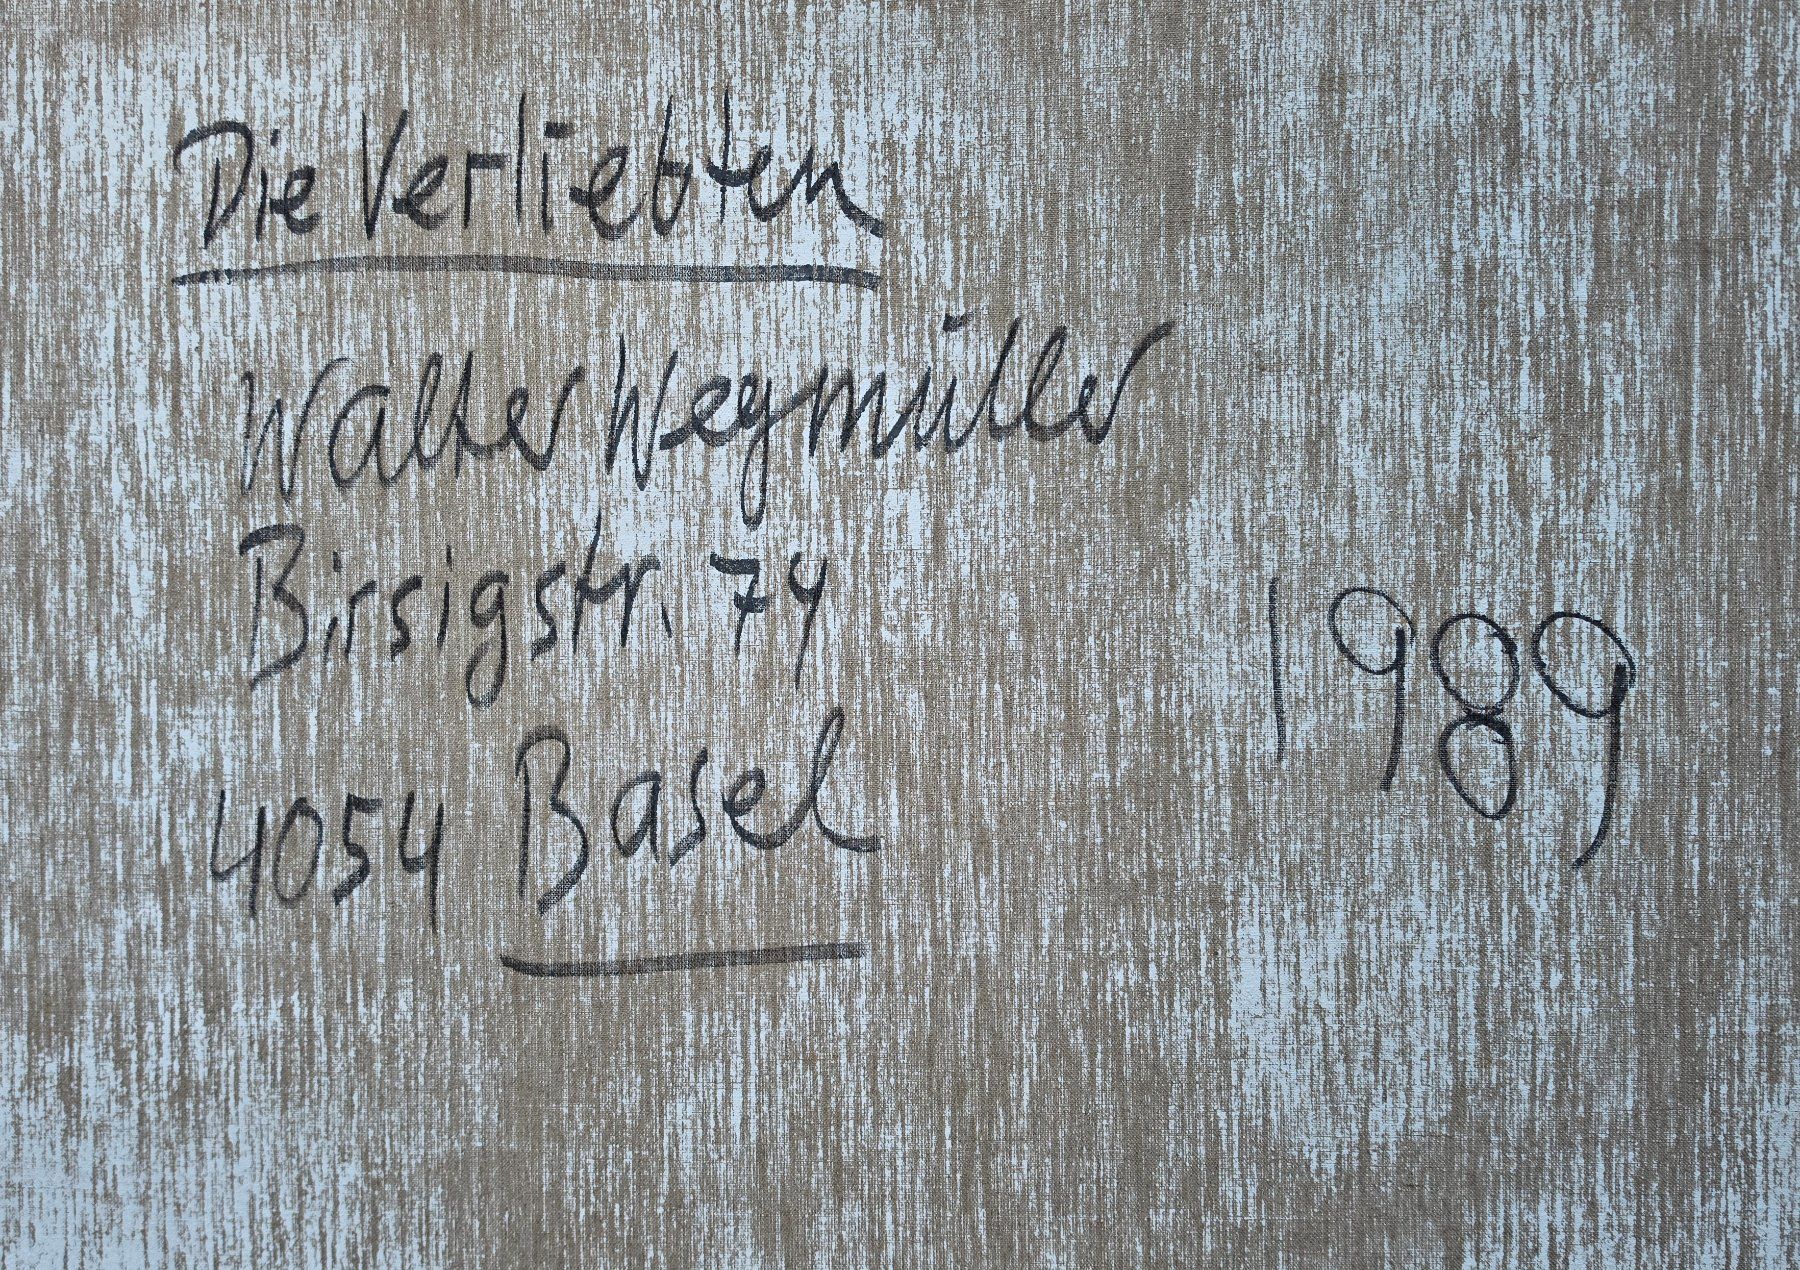 Die Verliebten
Walter Wegmüller
Birsigstr. 74
1989
4054 Basel